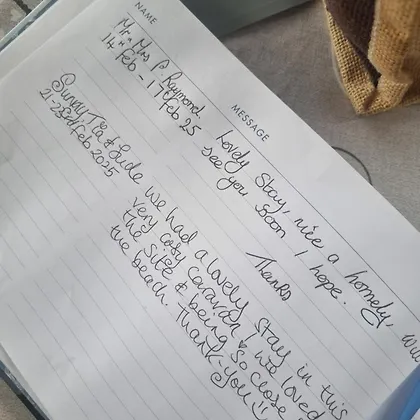 NAME
MESSAGE
Mr & Mrs P. Raymond
14th Feb - 17th Feb 25
Lovely Stay, nice & homely, will
see you soon I hope.
Thanks
21-23rd Feb 2025
we had a lovely stay in this
very cosy caravan & we loved
the site & being so close to
the beach. Thank-you